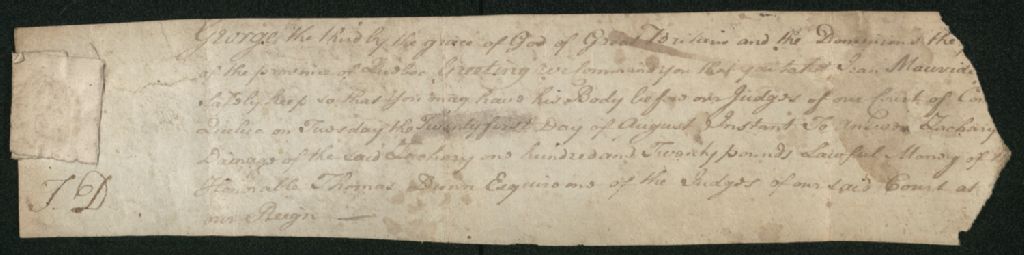 George the third by the grace of God of Great Britain and the Dominions the
of the province of Quebec Greeting we Command you that you take Jean
Safely keep so that you may have his Body before our Judges of our Court of Com
Quebec on Tuesday the Twenty first Day of August Instant To answer Zachary
Damage of the said Zachary one hundred and Twenty pounds Lawful Money of
Honorable Thomas Dunn Esquire one of the Judges of our said Court at
T. D
our Reign —